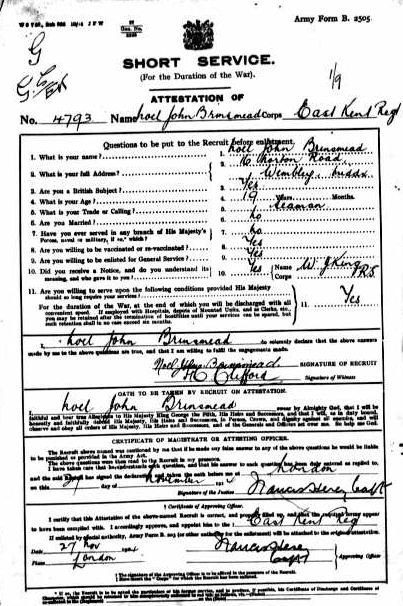 Army Form B. 2505.
G
SHORT SERVICE.
(For the Duration of the War).
1/9
ATTESTATION OF
No. 4793 Name Noel John Brinsmead Corps East Kent Regt
Questions to be put to the Recruit before enlistment.
1. What is your name? 1. Noel John Brinsmead
2. What is your full Address? 2. Norton Road, Wembley,
3. Are you a British Subject? 3. Yes
4. What is your Age? 4. 19 Years Months.
5. What is your Trade or Calling? 5. Seaman
6. Are you Married? 6. No
7. Have you ever served in any branch of His Majesty's 7. No
Forces, naval or military, if so,* which?
8. Are you willing to be vaccinated or re-vaccinated? 8. Yes
9. Are you willing to be enlisted for General Service? 9. Yes
10. Did you receive a Notice, and do you understand its 10. Yes Name W. J. King
meaning, and who gave it to you? Corps
11. Are you willing to serve upon the following conditions provided His Majesty
should so long require your services? 11. Yes
For the duration of the War, at the end of which you will be discharged with all
convenient speed. If employed with Hospitals, depots of Mounted Units, and as Clerks, etc.,
you may be retained after the termination of hostilities until your services can be spared, but
such retention shall in no case exceed six months.
I, Noel John Brinsmead do solemnly declare that the above answers
made by me to the above questions are true, and that I am willing to fulfil the engagements made.
Noel John Brinsmead SIGNATURE OF RECRUIT
Clifford Signature of Witness
OATH TO BE TAKEN BY RECRUIT ON ATTESTATION.
I, Noel John Brinsmead swear by Almighty God, that I will be
faithful and bear true Allegiance to His Majesty King George the Fifth, His Heirs and Successors, and that I will, as in duty bound,
honestly and faithfully defend His Majesty, His Heirs and Successors, in Person, Crown, and Dignity against all enemies, and will
observe and obey all orders of His Majesty, His Heirs and Successors, and of the Generals and Officers set over me. So help me God.
CERTIFICATE OF MAGISTRATE OR ATTESTING OFFICER.
The Recruit above named was cautioned by me that if he made any false answer to any of the above questions he would be liable
to be punished as provided in the Army Act.
The above questions were then read to the Recruit in my presence.
I have taken care that he understands each question, and that his answer to each question has been duly entered as replied to,
and the said Recruit has made and signed the declaration and taken the oath before me at London
on this 27 day of November 1914
Signature of the Justice
† Certificate of Approving Officer.
I certify that this Attestation of the above-named Recruit is correct, and properly filled up, and that the required forms appear
to have been complied with. I accordingly approve, and appoint him to the ‡ East Kent Reg
If enlisted by special authority, Army Form B. 203 (or other authority for the enlistment) will be attached to the original attestation.
Date 27 Nov 1914
Place London
Approving Officer
† The signature of the Approving Officer is to be affixed in the presence of the Recruit.
‡ Here insert the "Corps" for which the Recruit has been enlisted.